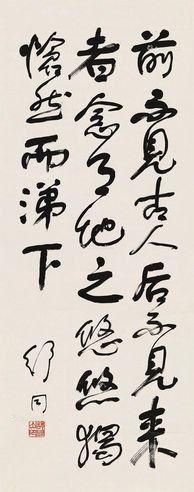 前不見古人后不見来
者念天地之悠悠獨
愴然而涕下
舒同